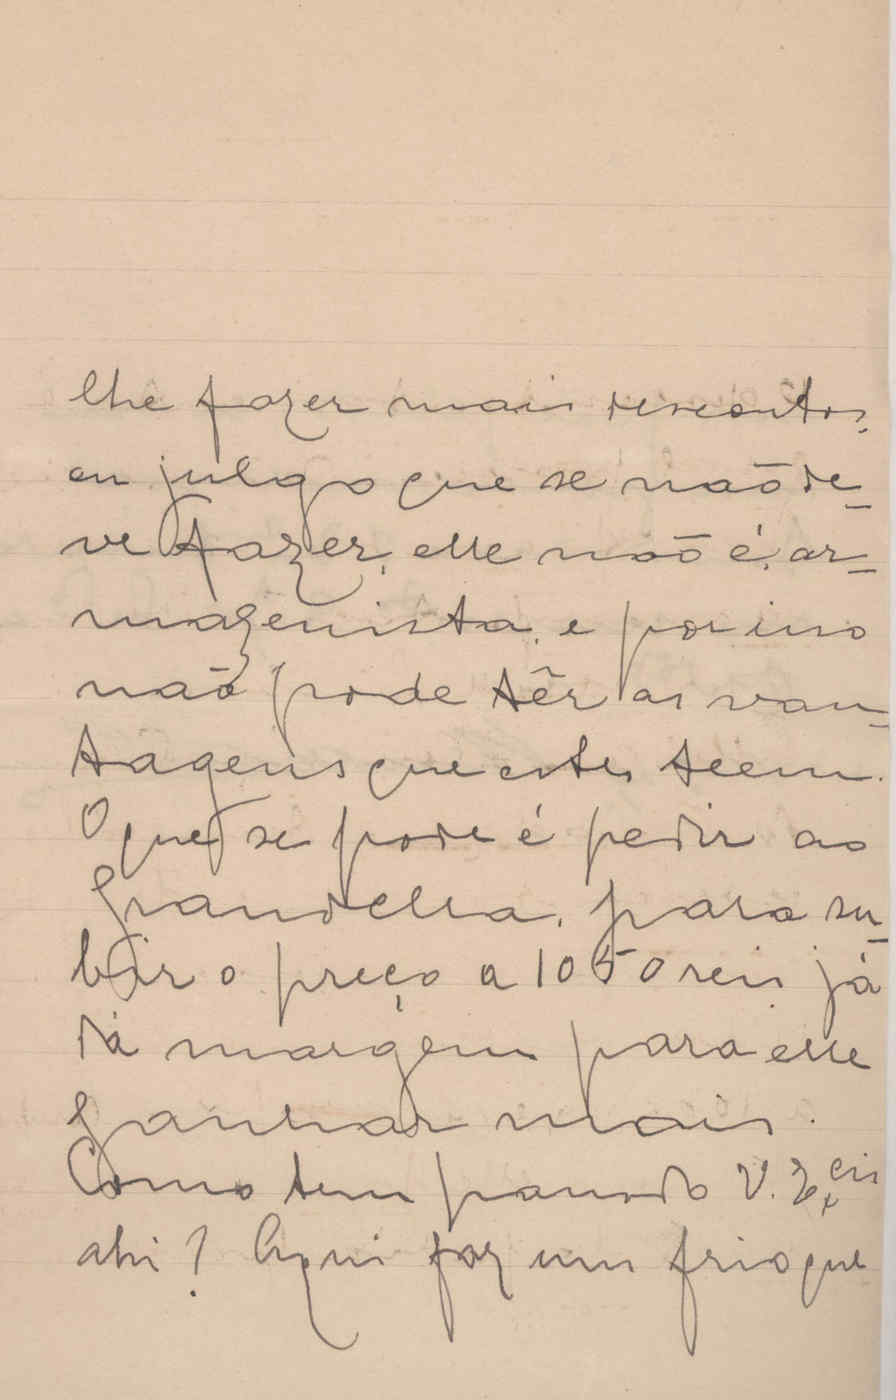 lhe fazer mais descontos,
eu julgo que se não de-
ve fazer, elle não é, ar-
mazenista, e por isso
não pode têr as van-
tagens que estes teem.
O que se pode é pedir ao
Grandella, para su-
bir o preço a 1050 reis já
dá margem para elle
ganhar mais.
Como tem passado V. Ex.cias
ahi? Aqui faz um frio que